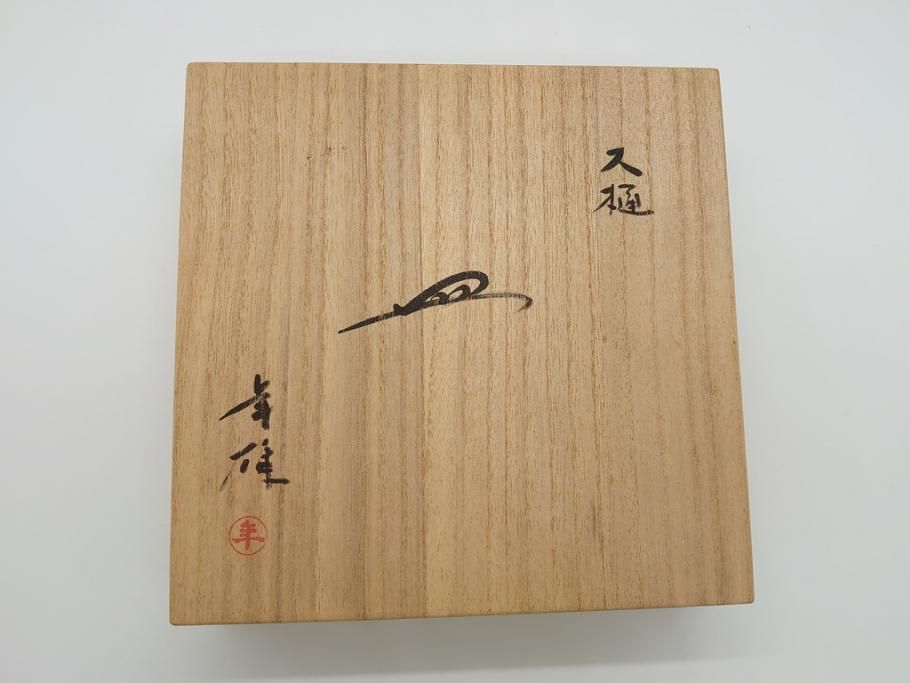 大樋
皿
年雄
年